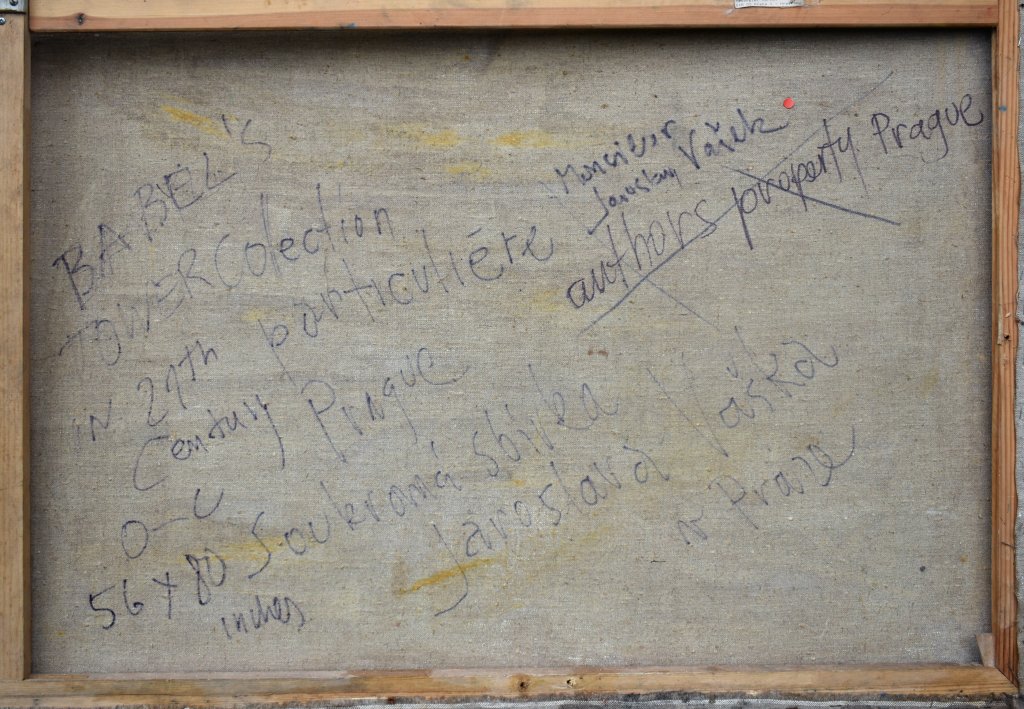 BABEL'S
TOWER Colection
in 21th particuliére
Century Prague
O-C
56 x 80
inches
Monsieur
Jaroslav Vašek
authors property Prague
Soukromá sbírka
Jaroslava Vaška
v Praze